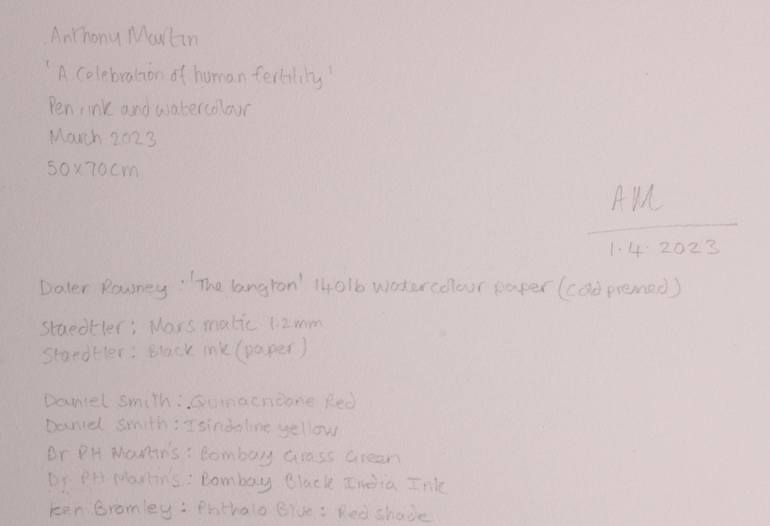 Anthony Martin
'A Celebration of human fertility'
Pen, ink and watercolour
March 2023
50x70cm
AM
1.4.2023
Daler Rowney: 'The langton' 140lb watercolour paper (cold pressed)
Staedtler: Mars matic 1.2mm
Staedtler: Black ink (paper)
Daniel Smith: Quinacridone Red
Daniel Smith: Isindoline yellow
Dr PH Martin's: Bombay Grass Green
Dr PH Martin's: Bombay Black India Ink
Ken Bromley: Phthalo Blue: Red shade